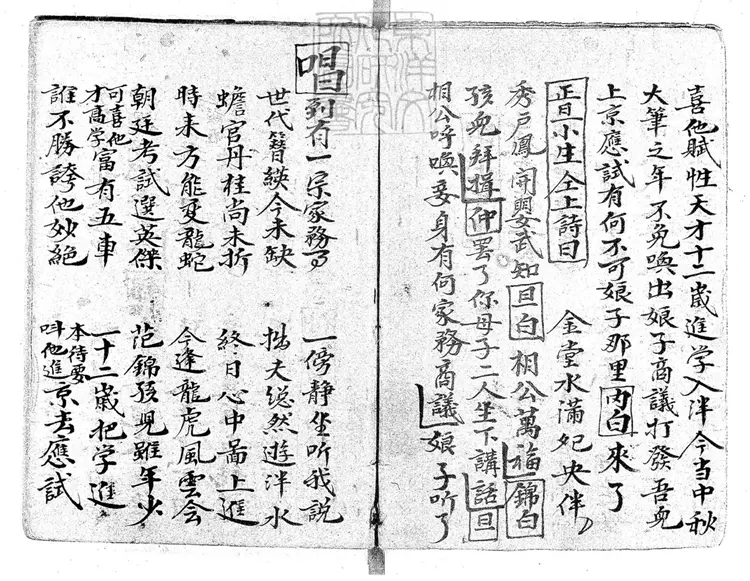 喜他賦性天才十二歲進学入泮今当中秋
大筆之年不免喚出娘子商議打發吾兒
上京應試有何不可娘子那里内白來了
正旦小生仝上詩曰 金堂水滿妃央伴
秀戶鳳開嬰武知旦白相公萬福錦白
孩兒拜揖仲罷了你母子二人坐下講話旦
相公呼喚妾身有何家務商議娘子听了
唱到有一宗家務 一傍静坐听我說
世代簪纓今未缺 拙夫縂然遊泮水
蟾官丹桂尚未折 終日心中啚上進
時耒方能変龍蛇 今逢龍虎風雲会
朝廷考試選英傑 范錦孩児雖年少
可喜他才高学富有五車 一十二歲把学進
誰不勝誇他妙絶 本待要呌他進京去應試